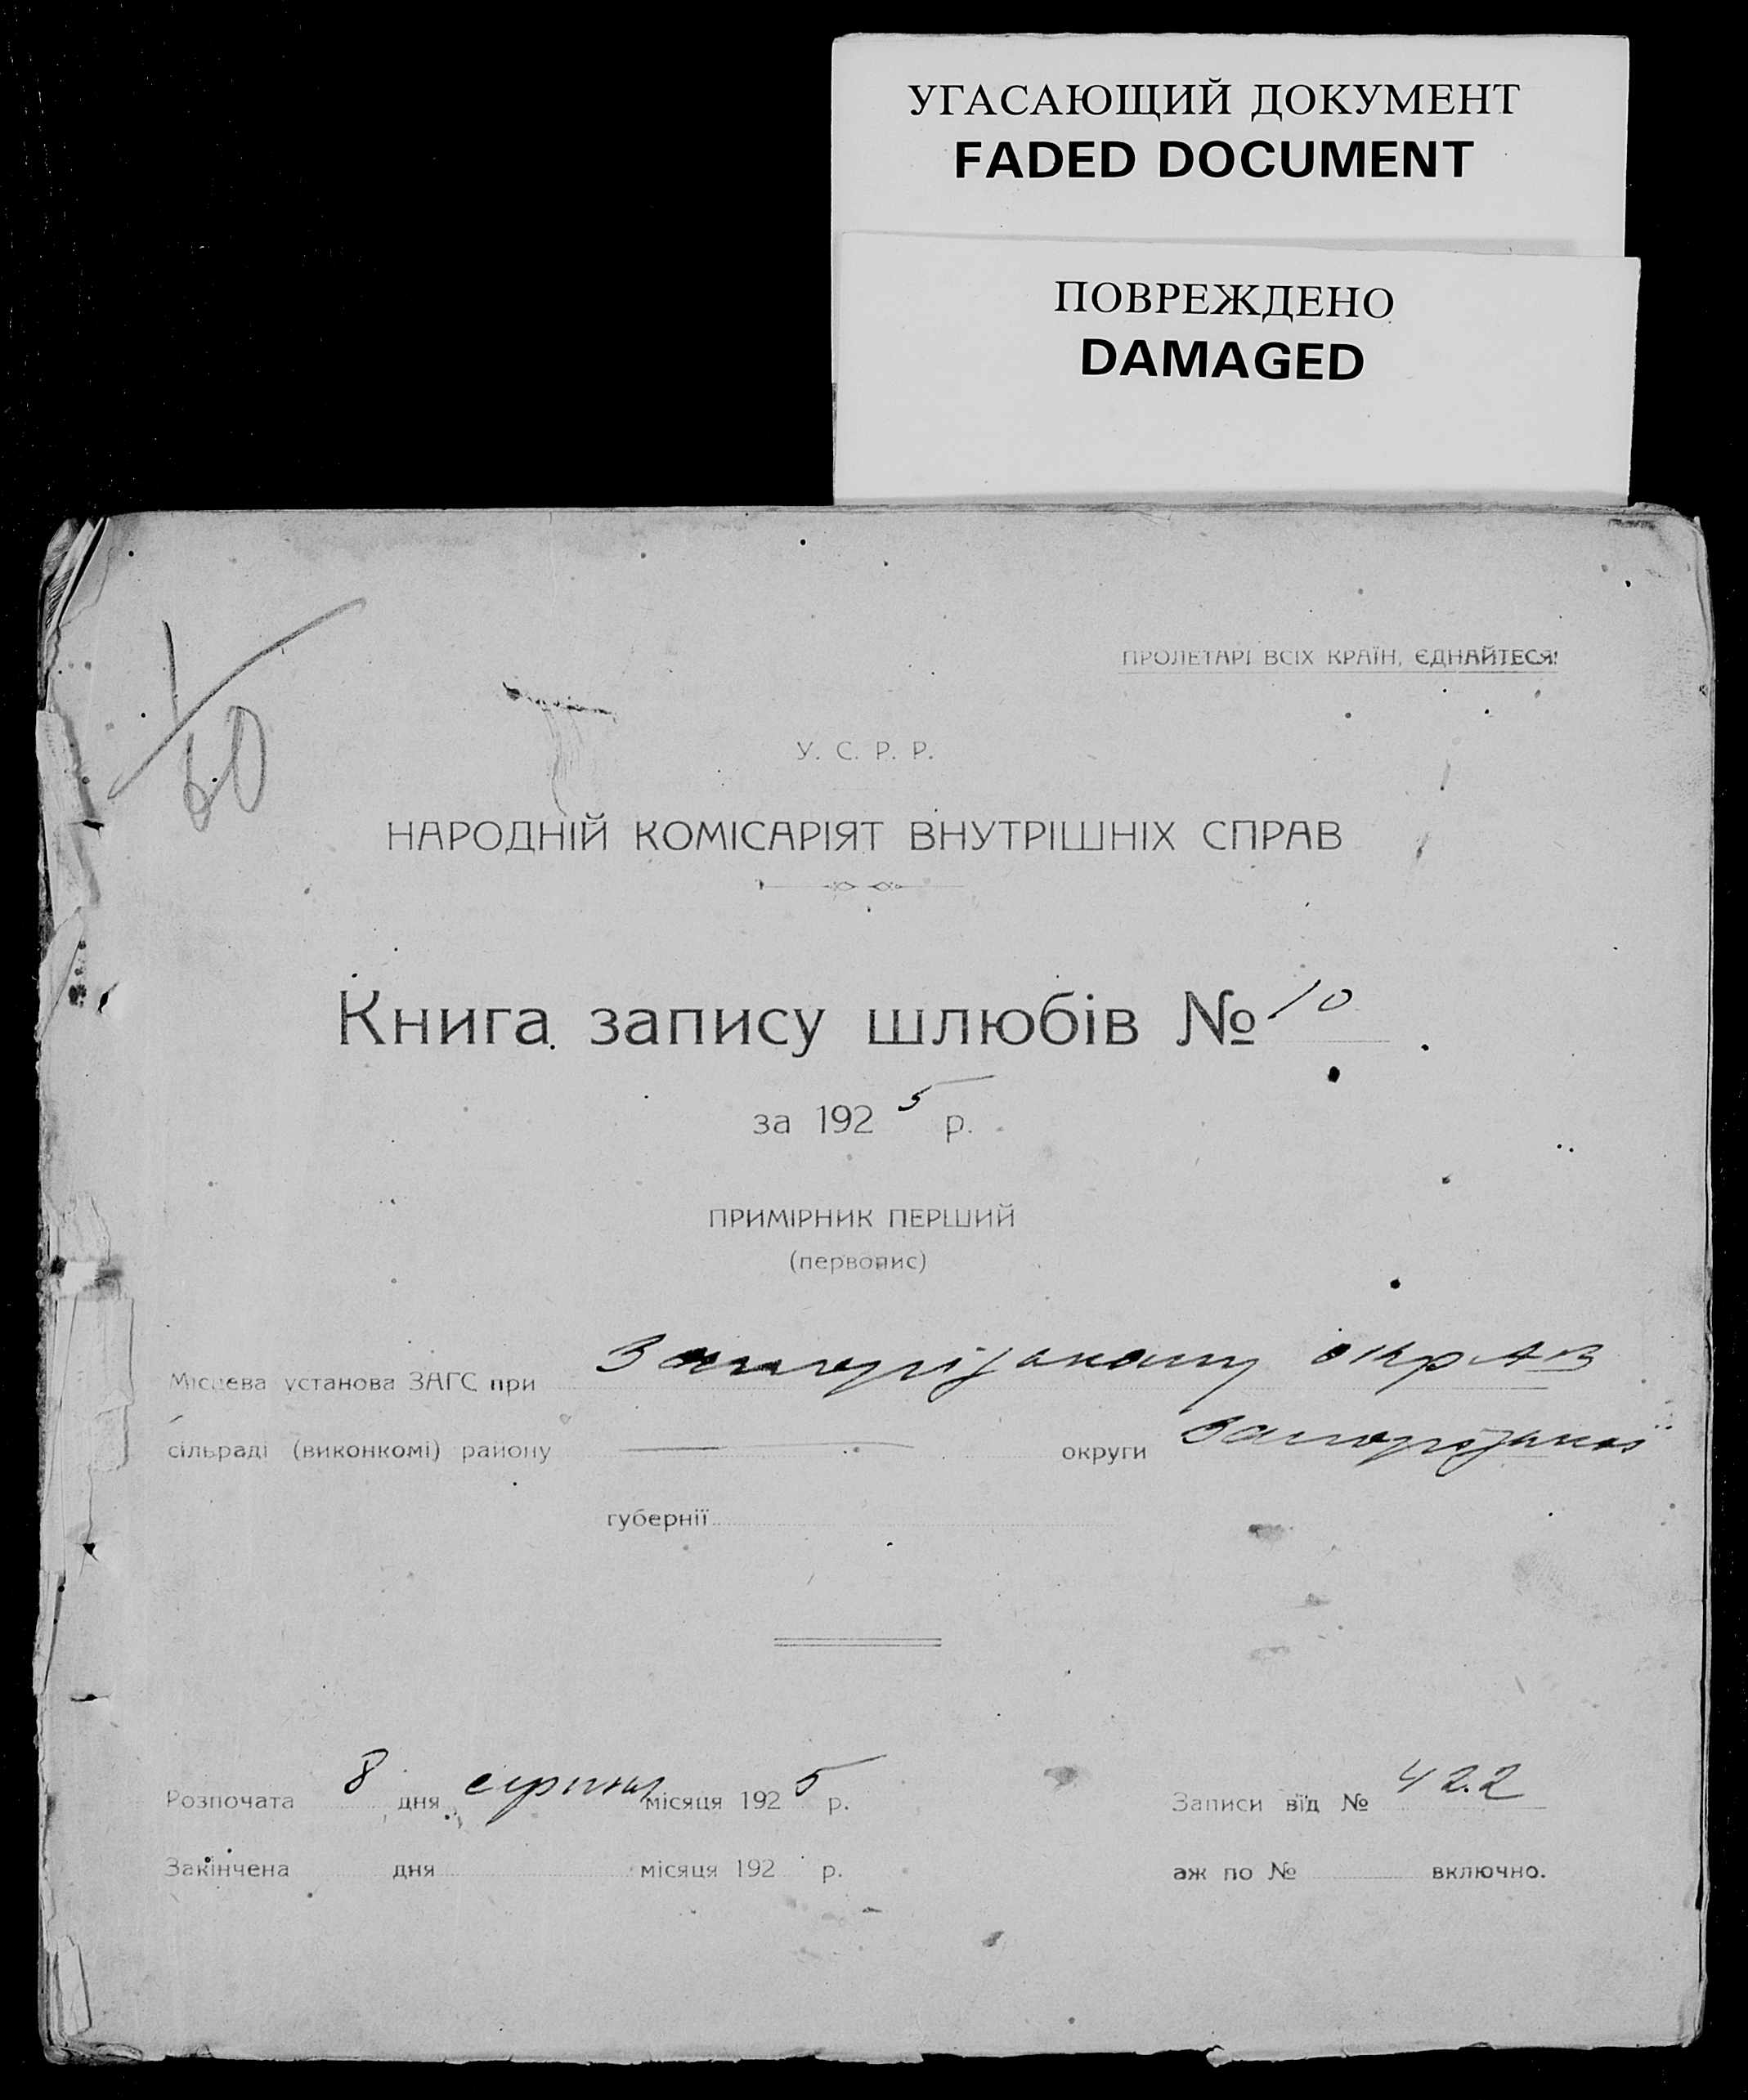 УГАСАЮЩИЙ ДОКУМЕНТ
FADED DOCUMENT
ПОВРЕЖДЕНО
DAMAGED
1/60
ПРОЛЕТАРІ ВСІХ КРАЇН, ЄДНАЙТЕСЯ!
У. С. Р. Р.
НАРОДНІЙ КОМІСАРІЯТ ВНУТРІШНІХ СПРАВ
Книга запису шлюбів № 10
за 1925 р.
ПРИМІРНИК ПЕРШИЙ
(первопис)
Місцева установа ЗАГС при Запорізькому окрАВ
сільраді (виконкомі) району округи Запорізької
губернії
Розпочата 8 дня серпня місяця 1925 р. Записи від № 422
Закінчена дня місяця 192 р. аж по № включно.